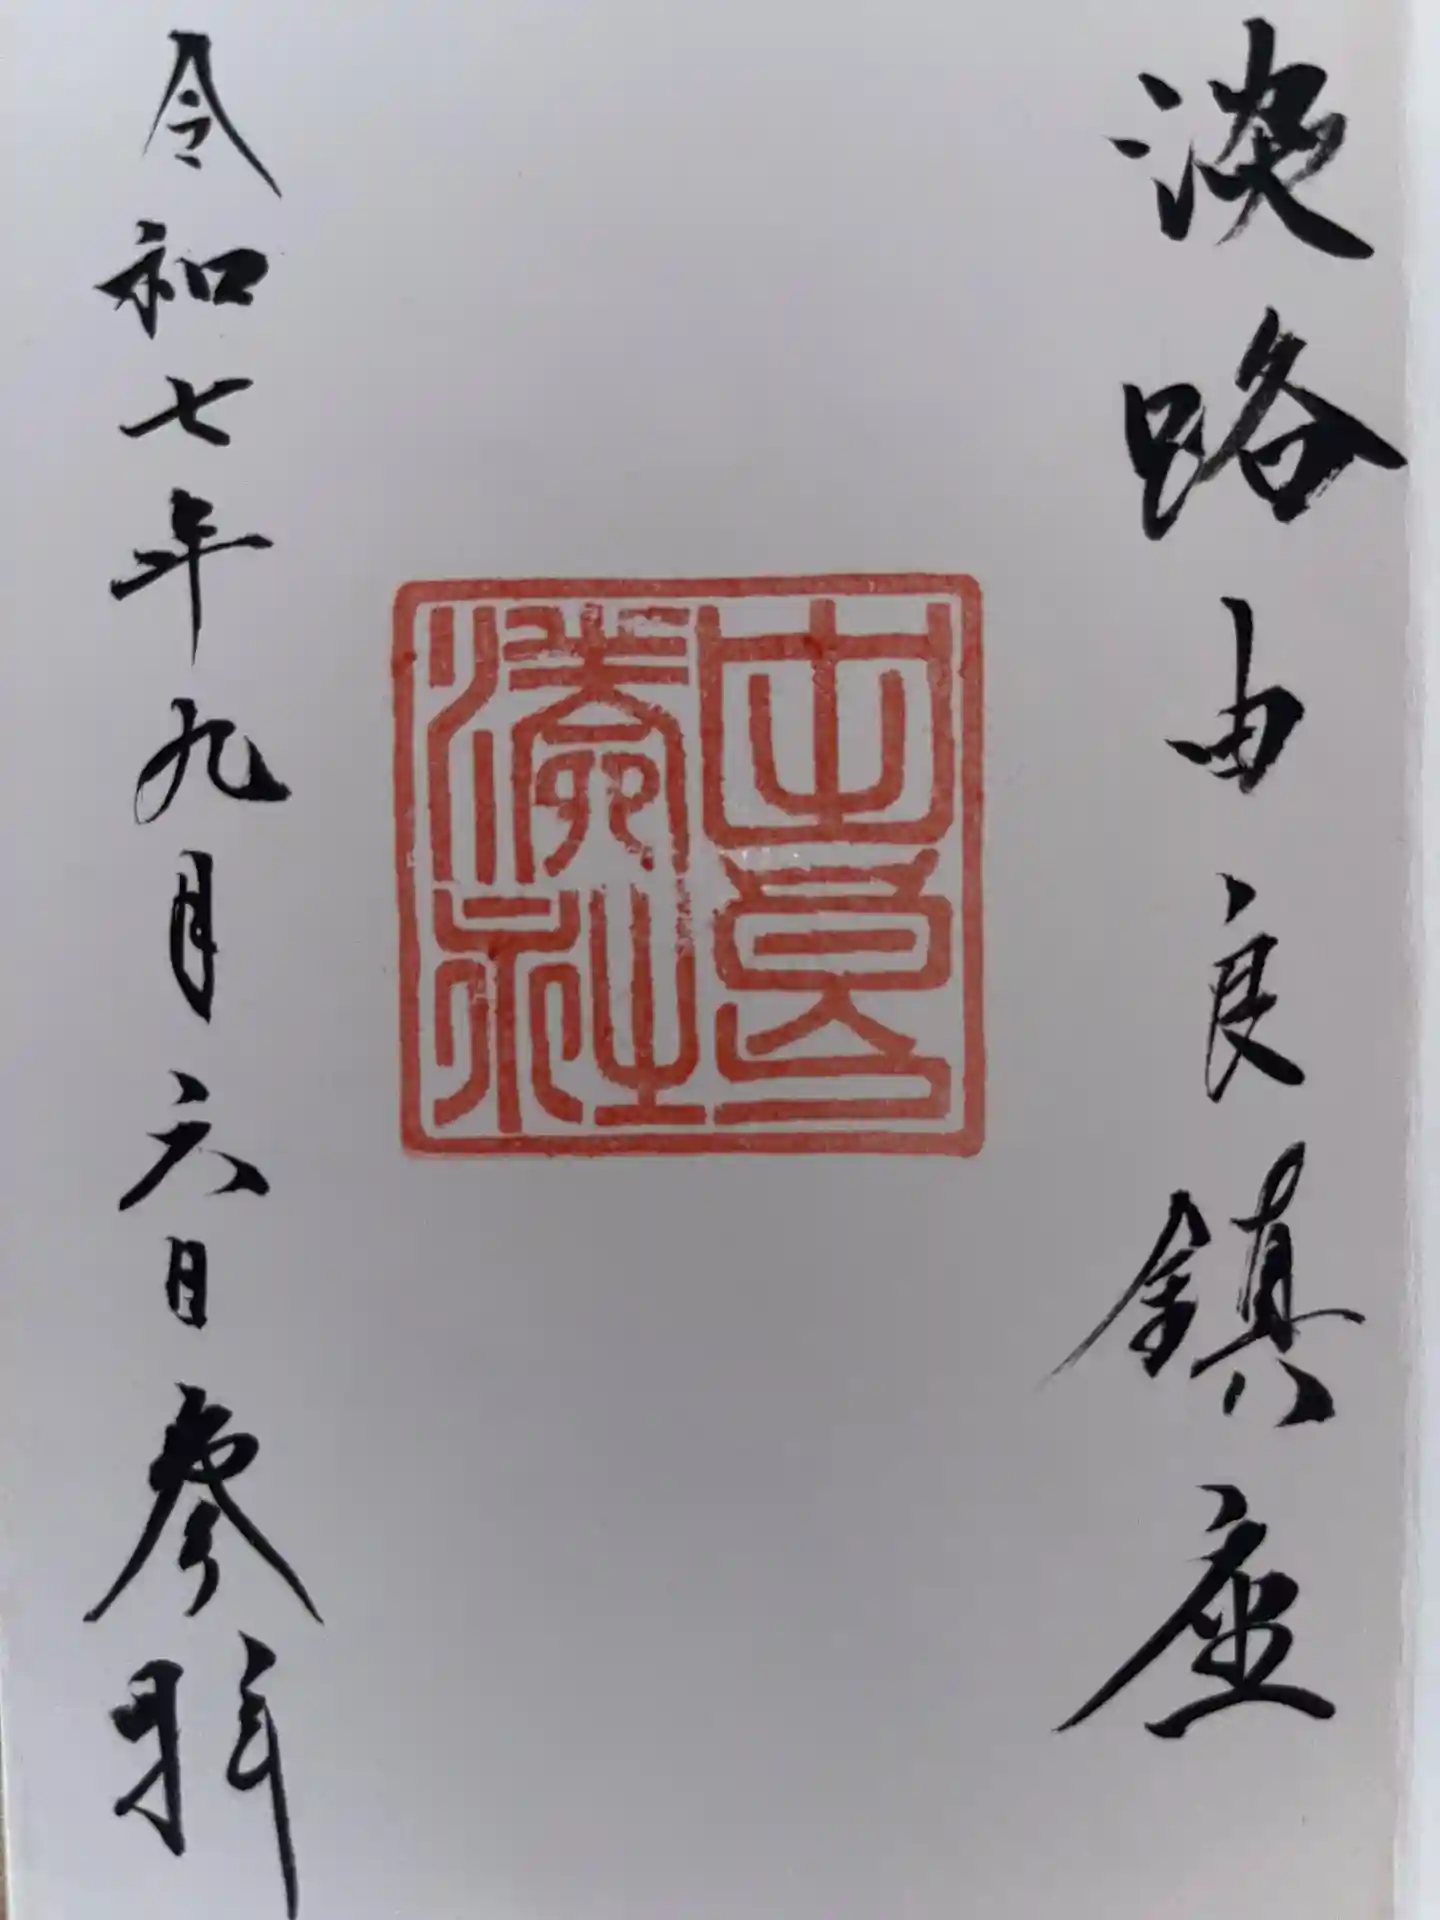 淡路由良鎮座
由良湊社
令和七年九月六日参拜